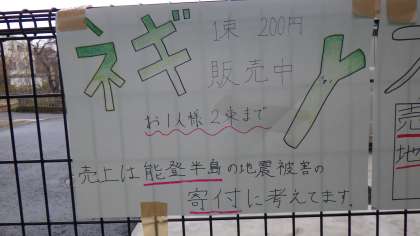 ネギ
1束 200円
販売中
お1人様2束まで
売上は能登半島の地震被害の
寄付に考えてます。
売
地